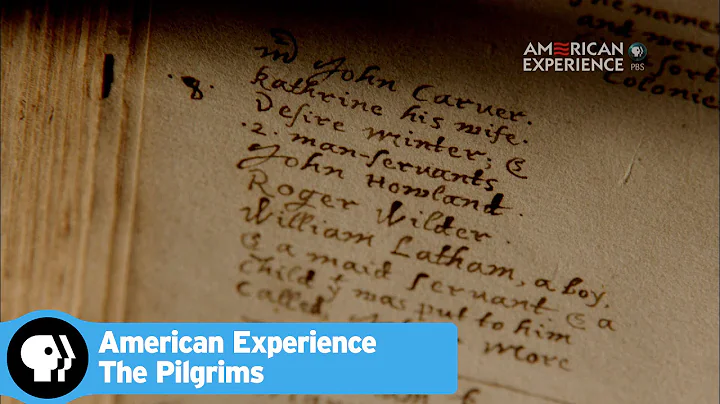 the names
and were
sort
Colonie
AMERICAN
EXPERIENCE
PBS
mr John Carver.
.8. kathrine his wife.
Desire Winter; &
.2. man-servants
John Howland.
Roger Wilder.
William Latham, a boy.
& a maid servant & a
child yt was put to him
Called, More
American Experience
The Pilgrims